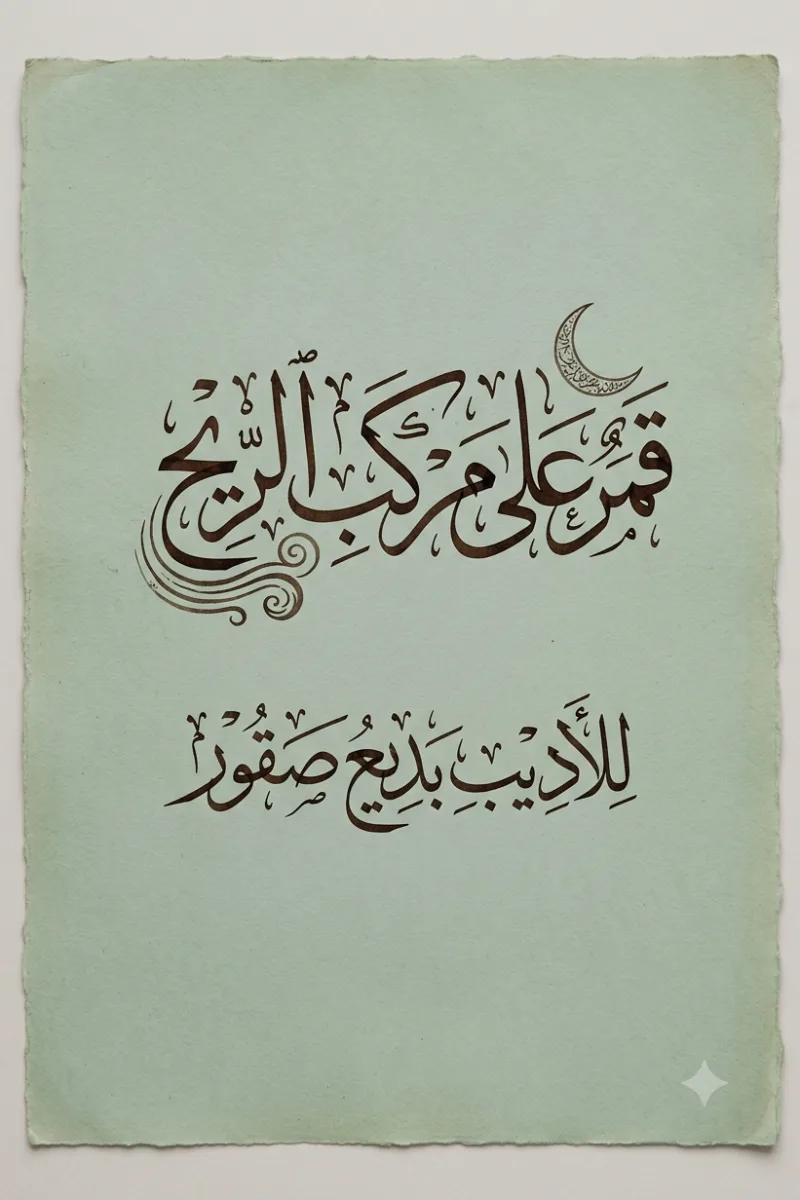 قَمَرٌ عَلَى مَرْكَبِ ٱلرِّيْحِ
لِلأَدِيبِ بَدِيعُ صَقُوْرْ